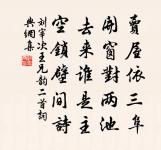 賣屋依三阜
開窗對兩池
去來誰是主
空鎖壁間詩
劉宰次王兄韵二首詞
典網集